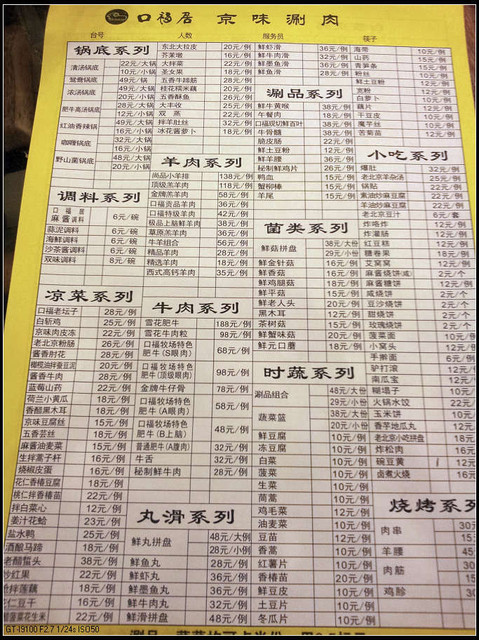 口福居 京味涮肉
台号 人数 服务员 筷子
锅底系列
清汤锅底 22元/大锅
10元/小锅
鸳鸯锅底 49元/锅
浓汤锅底 49元/大锅
20元/小锅
肥牛高汤锅底 28元/大锅
12元/小锅
红油香辣锅 49元/大锅
16元/小锅
咖喱锅底 32元/大锅
16元/小锅
野山菌锅底 48元/大锅
20元/小锅
调料系列
口福居麻酱调料 6元/碗
蒜泥调料 6元/碗
海鲜调料 6元/碗
沙茶酱调料 6元/碗
双味调料 8元/碗
凉菜系列
口福老坛子 28元/例
白斩鸡 25元/例
京味肉皮冻 22元/例
老北京粉肠 26元/例
酱香肘花 28元/例
20元/例
酱香牛肉 28元/例
蓝莓山药 22元/例
荷兰小黄瓜 18元/例
香醋黑木耳 18元/例
京味豆腐丝 15元/例
五香芸丝 18元/例
麻酱油麦菜 15元/例
生拌蒿子杆 16元/例
烧椒皮蛋 16元/例
花仁香椿豆腐 18元/例
桃仁拌香椿苗 22元/例
拌白菜心 12元/例
姜汁花蛤 23元/例
盐水鸭 25元/例
酒酿马蹄 18元/例
老醋蜇头 38元/例
22元/例
18元/例
16元/例
22元/例
东北大拉皮 20元/例
芥茉墩 16元/例
大拌菜 22元/例
圣女果 18元/例
五香牛蹄筋 28元/例
桂花糯米藕 20元/例
五香酥鱼 26元/例
大丰收 25元/例
双蒸 22元/例
拌羊肚丝 32元/例
冰花酱萝卜 18元/例
羊肉系列
尚品小羊排 138元/例
顶级羔羊肉 118元/例
金牌羔羊肉 58元/例
口福贡品羊肉 36元/例
口福特级羊肉 42元/例
极品上脑鲜羊肉 38元/例
草原羔羊肉 36元/例
牛羊组合 56元/例
精品羔羊肉 28元/例
精选羊肉 18元/例
西式高钙羊肉 35元/例
牛肉系列
雪花肥牛 188元/例
雪花牛肉粒 98元/例
口福牧场特色肥牛（S眼肉） 68元/例
口福牧场特色肥牛（顶级眼肉） 98元/例
金牌牛仔骨 78元/例
口福牧场特色肥牛（A眼肉） 58元/例
口福牧场特色肥牛（B上脑） 48元/例
普通肥牛（A腹肉） 32元/例
牛舌 32元/例
秘制鲜牛肉 28元/例
丸滑系列
鲜丸拼盘 48元/大例
28元/小例
鲜鱼丸 28元/例
鲜虾丸 36元/例
鲜墨鱼丸 36元/例
鲜牛肉丸 32元/例
48元/例
鲜虾滑 36元/例
鲜牛肉滑 32元/例
鲜墨鱼滑 36元/例
鲜鱼滑 28元/例
涮品系列
鲜牛黄喉 38元/例
午餐肉 18元/例
口福现切鲜百叶 38元/例
牛骨髓 38元/例
脆皮肠 22元/例
鲜土豆粉 12元/例
鲜羊腰 36元/例
秘制鲜鸡片 26元/例
鸭血 15元/例
蟹柳棒 15元/例
羊尾 15元/例
菌类系列
鲜菇拼盘 38元/大份
29元/小份
鲜金针菇 16元/例
鲜香菇 16元/例
鲜鸡腿菇 18元/例
鲜平菇 15元/例
鲜老人头 20元/例
黑木耳 12元/例
茶树菇 15元/例
鲜蟹味菇 20元/例
鲜元口蘑 18元/例
时蔬系列
涮品组合 48元/大份
29元/小份
蔬菜篮 38元/大份
20元/小份
鲜豆腐 10元/例
冻豆腐 10元/例
白菜 10元/例
菠菜 10元/例
生菜 10元/例
茼蒿 10元/例
鸡毛菜 12元/例
油麦菜 10元/例
豆苗 12元/例
香蒿 10元/例
红薯片 10元/例
笋片 12元/例
土豆片 10元/例
冬瓜片 10元/例
海带 10元/例
山药 15元/例
青笋条 15元/例
粉丝 10元/例
鲜土豆粉 12元/例
宽粉 12元/例
白萝卜 10元/例
藕片 10元/例
干豆皮 10元/例
魔芋丝 10元/例
苦菊苗 12元/例
小吃系列
爆肚 32元/例
老北京羊杂汤 25元/例
锅贴 22元/例
素油炒麻豆腐 22元/例
羊油炒麻豆腐 22元/例
老北京豆汁 6元/套
炸咯吱 12元/例
炸灌肠 12元/例
红豆糕 12元/例
糖卷果 18元/例
艾窝窝 12元/例
麻酱烧饼 2元/个
麻酱糖饼 12元/例
咸烧饼 2元/个
豆沙烧饼 2元/个
甜烧饼 2元/个
玫瑰烧饼 2元/个
菠菜面 10元/例
小窝头 12元/例
手擀面 6元/例
驴打滚 12元/例
南瓜宝 12元/例
糊塌子 10元/例
火锅水饺 22元/例
玉米饼 10元/例
香芋地瓜丸 12元/例
老北京小吃拼盘 18元/例
炸松肉 16元/例
碗豆黄 12元/例
卤煮火烧 16元/例
烧烤系列
肉串
羊腰
肉筋
鸡胗
GT-I9100 F2.7 1/24s ISO50